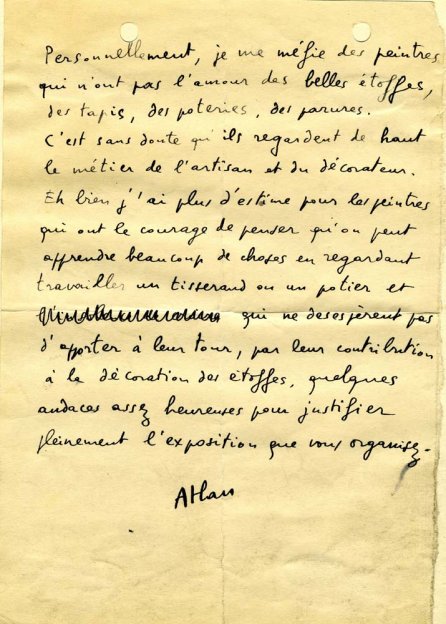 Personnellement, je me méfie des peintres
qui n'ont pas l'amour des belles étoffes,
des tapis, des poteries, des parures.
C'est sans doute qu'ils regardent de haut
le métier de l'artisan et du décorateur.
Eh bien j'ai plus d'estime pour les peintres
qui ont le courage de penser qu'on peut
apprendre beaucoup de choses en regardant
travailler un tisserand ou un potier et
qui ne desespèrent pas
d'apporter à leur tour, par leur contribution
à la décoration des étoffes, quelques
audaces assez heureuses pour justifier
pleinement l'exposition que vous organisez.
Atlan